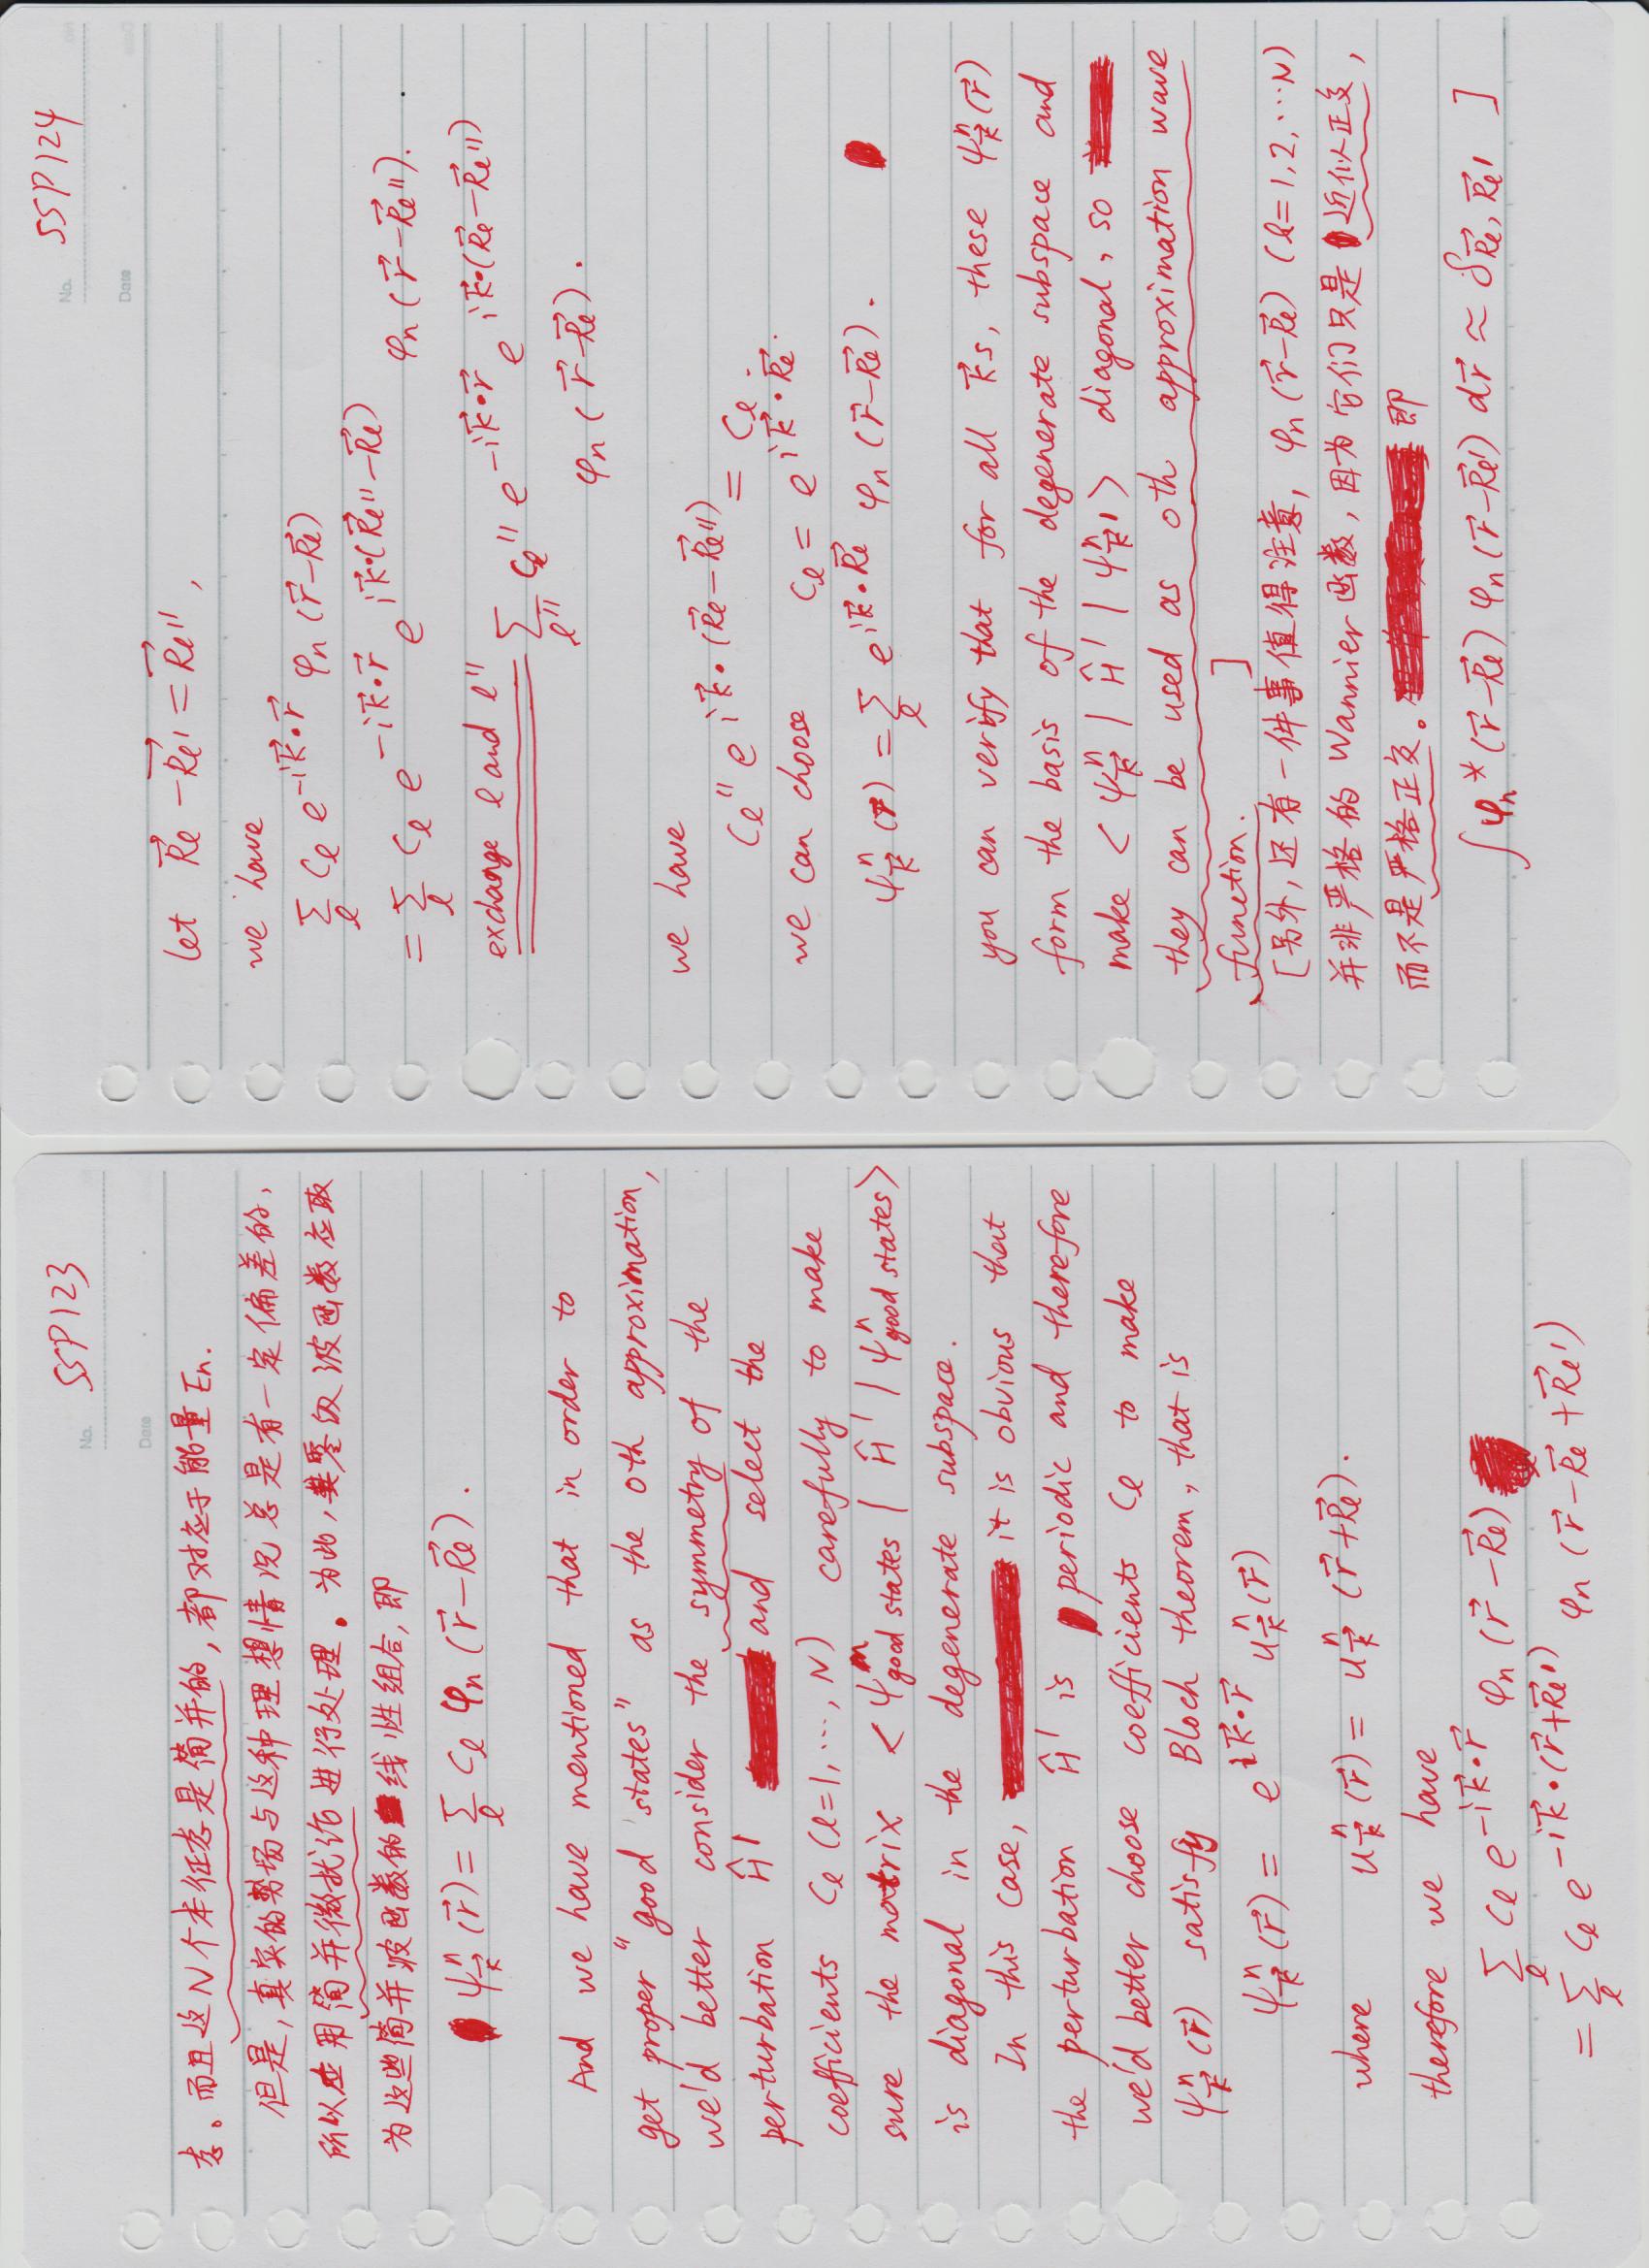 No. SSP123
Date
态。而且这N个本征态是简并的,都对应于能量En.
但是,真实的势场与这种理想情况总是有一定偏差的,
所以应用简并微扰论进行处理。为此,其零级波函数应取
为这些简并波函数的线性组合,即
ψ^n_k⃗ (r⃗) = Σ_l C_l φ_n (r⃗ − R⃗_l).
And we have mentioned that in order to
get proper "good states" as the 0th approximation,
we'd better consider the symmetry of the
perturbation Ĥ' and select the
coefficients C_l (l=1, ⋯, N) carefully to make
sure the matrix < ψ^m_good states | Ĥ' | ψ^n_good states >
is diagonal in the degenerate subspace.
In this case, it is obvious that
the perturbation Ĥ' is periodic and therefore
we'd better choose coefficients C_l to make
ψ^n_k⃗ (r⃗) satisfy Bloch theorem, that is
ψ^n_k⃗ (r⃗) = e^{ik⃗·r⃗} u^n_k⃗ (r⃗)
where u^n_k⃗ (r⃗) = u^n_k⃗ (r⃗+R⃗_l).
therefore we have
Σ_l C_l e^{−ik⃗·r⃗} φ_n (r⃗ − R⃗_l)
= Σ_l C_l e^{−ik⃗·(r⃗+R⃗_l')} φ_n (r⃗ − R⃗_l + R⃗_l')
No. SSP124
Date
let R⃗_l − R⃗_l' = R⃗_l'',
we have
Σ_l C_l e^{−ik⃗·r⃗} φ_n (r⃗−R⃗_l)
= Σ_l C_l e^{−ik⃗·r⃗} e^{ik⃗·(R⃗_l''−R⃗_l)} φ_n (r⃗−R⃗_l'').
exchange l and l'' Σ_l'' C_l'' e^{−ik⃗·r⃗} e^{ik⃗·(R⃗_l−R⃗_l'')}
φ_n (r⃗−R⃗_l).
we have
C_l'' e^{ik⃗·(R⃗_l−R⃗_l'')} = C_l.
we can choose C_l = e^{ik⃗·R⃗_l}.
ψ^n_k⃗ (r⃗) = Σ_l e^{ik⃗·R⃗_l} φ_n (r⃗−R⃗_l).
you can verify that for all k⃗s, these ψ^n_k⃗ (r⃗)
form the basis of the degenerate subspace and
make < ψ^n_k⃗ | Ĥ' | ψ^n_k⃗' > diagonal, so
they can be used as 0th approximation wave
function. ]
[另外,还有一件事值得注意, φ_n (r⃗−R⃗_l) (l=1,2,⋯N)
并非严格的 Wannier 函数,因为它们只是近似正交,
而不是严格正交。即
∫φ_n* (r⃗−R⃗_l) φ_n (r⃗−R⃗_l') dr⃗ ≈ δ_R⃗_l, R⃗_l' ]